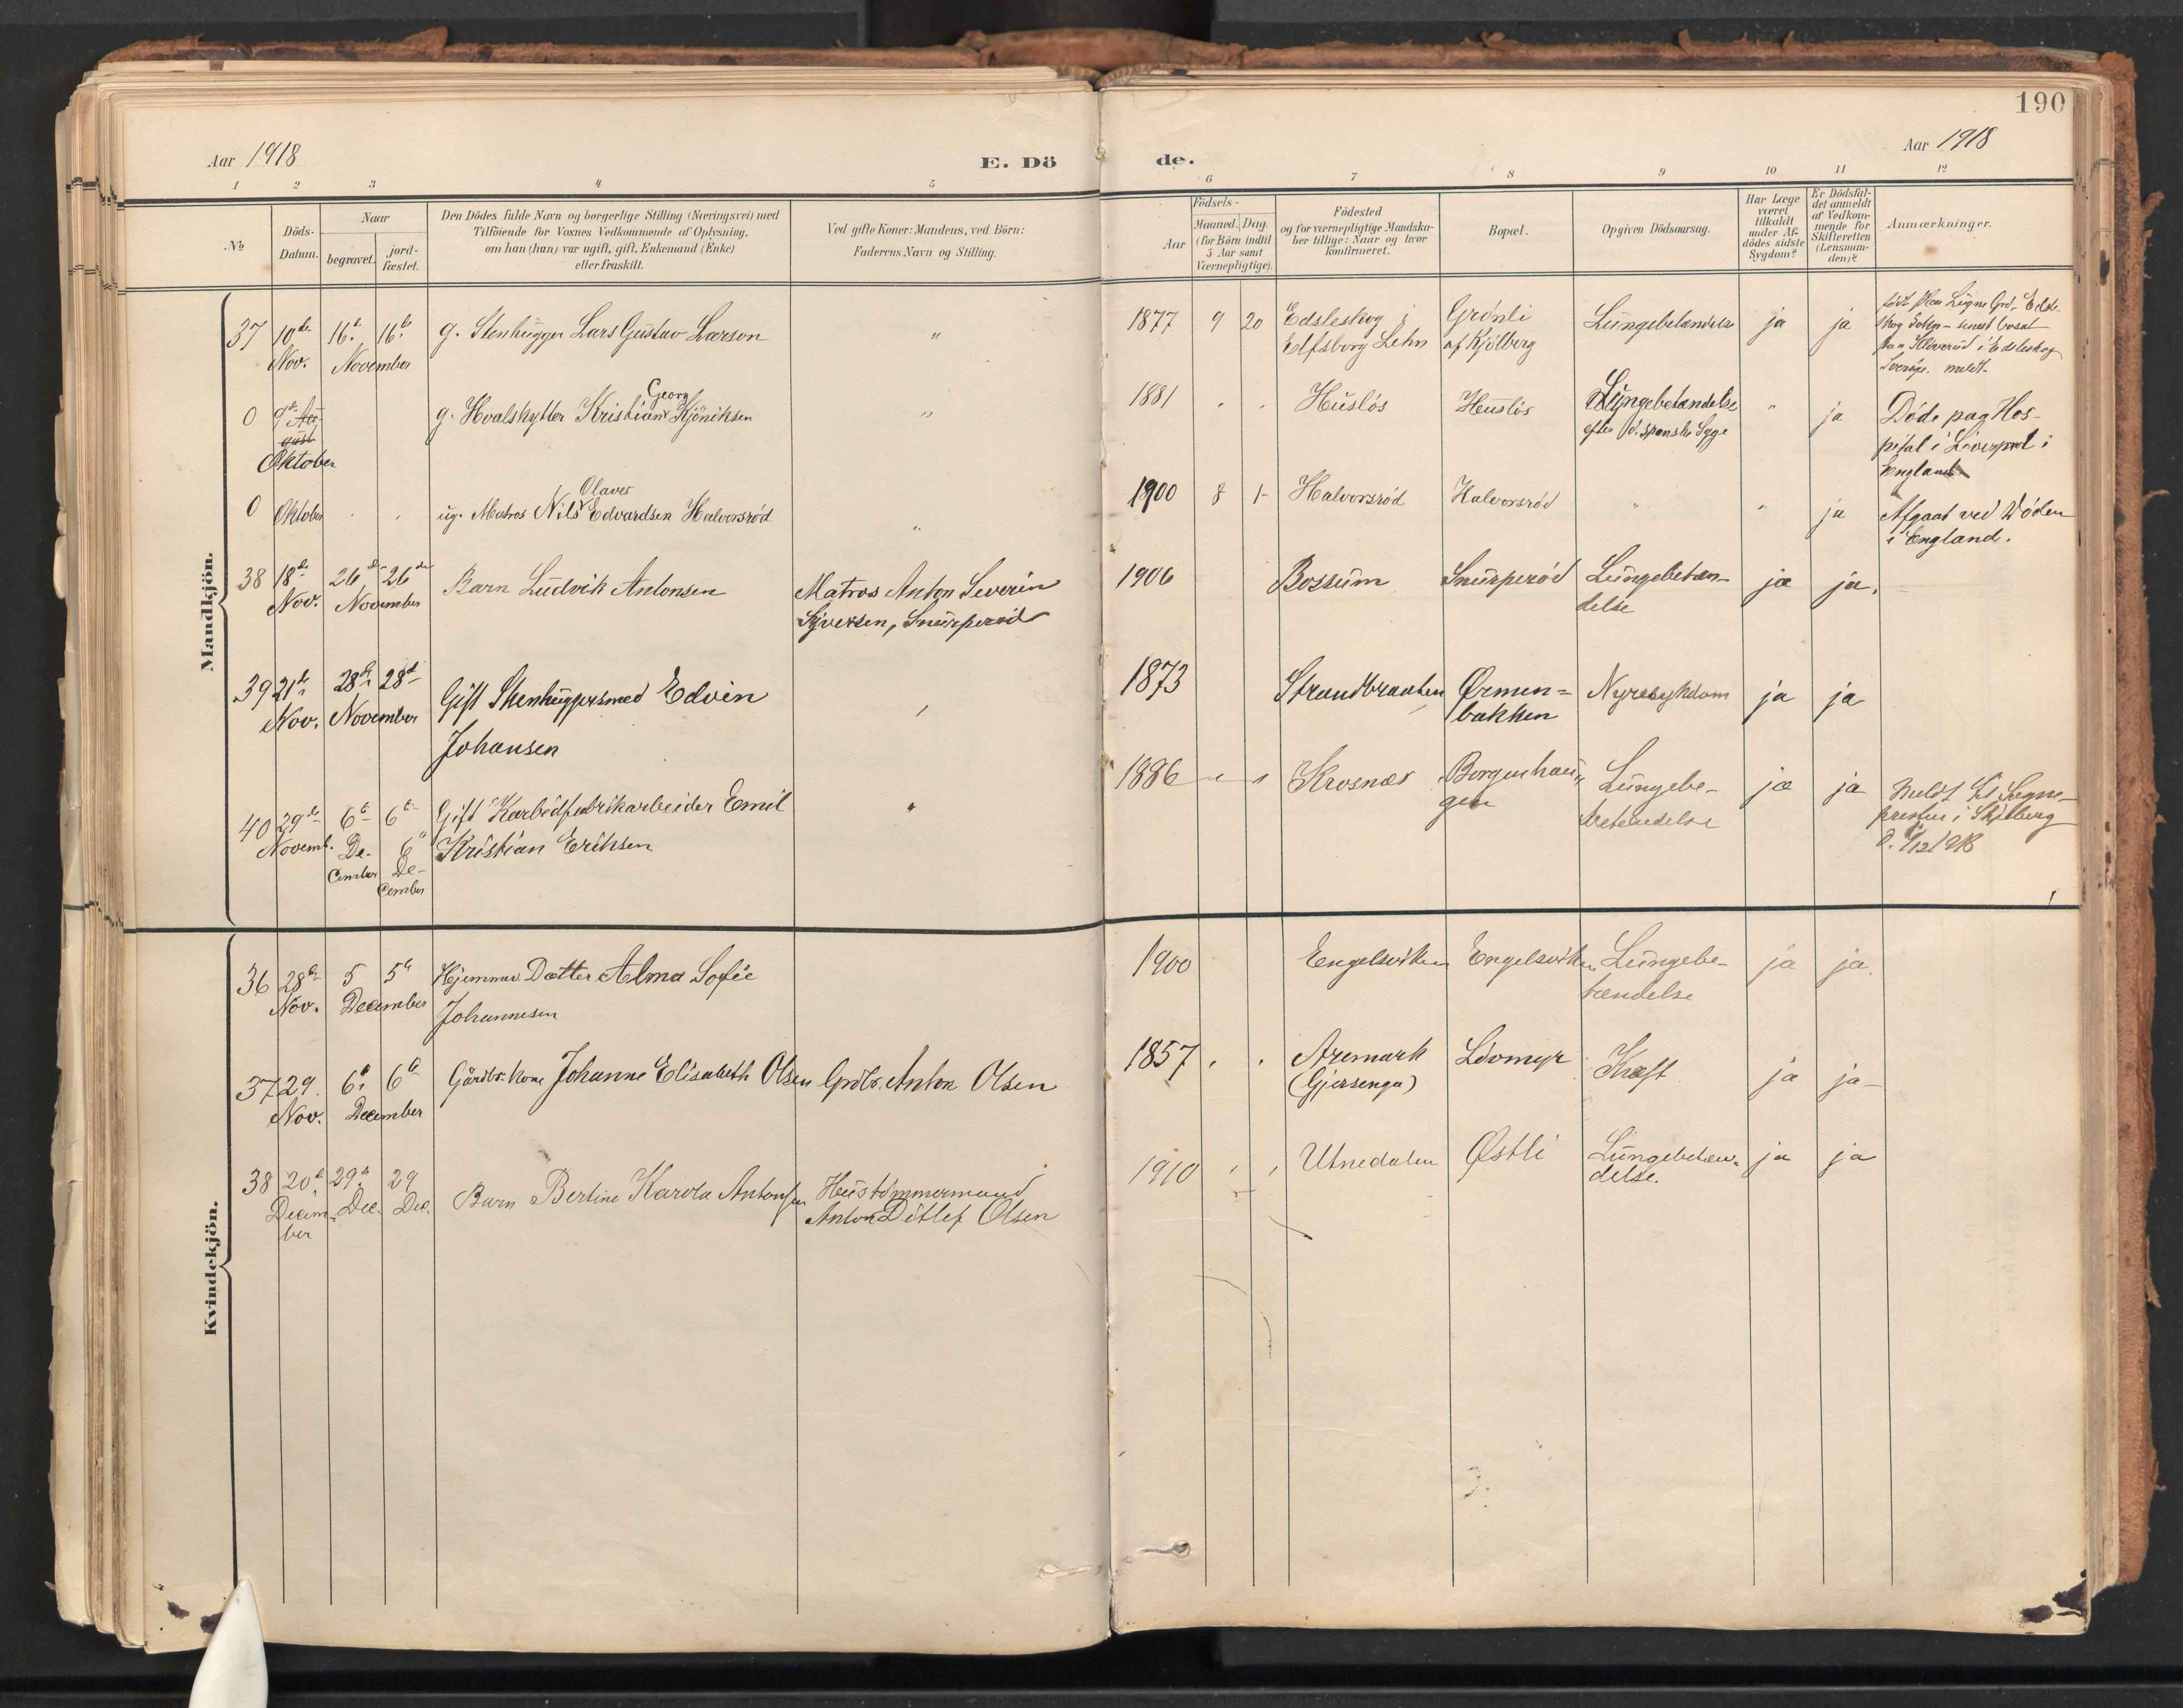 190
Aar 1918
E. Dö
de.
Aar 1918
1 2 3 4 5
6 7 8 9 10 11 12
No
Döds-
Datum.
Naar
begravet.
jord-
fæstet.
Den Dödes fulde Navn og borgerlige Stilling (Næringsvei) med
Tilföiende for Voxnes Vedkommende af Oplysning,
om han (hun) var ugift, gift, Enkemand (Enke)
eller fraskilt.
Ved gifte Koner: Mandens, ved Börn:
Faderens Navn og Stilling.
Födsels-
Aar
Maaned. Dag.
(for Börn indtil
5 Aar samt
Værnepligtige).
Födested
og for værnepligtige Mandska-
ber tillige: Naar og hvor
konfirmeret.
Bopæl.
Opgiven Dödsaarsag.
Har Læge
været
tilkaldt
under Af-
dödes sidste
Sygdom?
Er Dödsfal-
det anmeldt
af Vedkom-
mende for
Skifteretten
(Lensman-
den)?
Anmærkninger.
Mandkjön.
37 10de 16de 16de g. Stenhugger Lars Gustav Larson "
Nov. November
1877 9 20 Edsleskog i Grönli Lungebetændelse ja ja
Elfsborg Lehn af Kjölberg
Sverige. meldt
Georg
0 9de August g. Hvalskytter Kristian Kjönihsen "
Oktober
1881 Huslös Huslös Lungebetændelse " ja Döde paa Hos-
efter d. spanske Syge
pital i Liverpool i
England
Olaves
0 Oktober ug. Matros Nils Edvardsen Halvorsröd "
1900 8 1 Halvorsröd Halvorsröd " " ja Afgaat ved Döden
i England.
38 18de 26de 26de Barn Ludvik Antonsen Matros Anton Severin
Nov. November Syversen, Snurperöd
1906 Bossum Snurperöd Lungebetæn- ja ja.
delse
39 21de 28de 28de Gift Stenhuggersmed Edvin
Nov. November
Johansen
1873 Strandbraaten Ørmen= Nyresykdom ja ja
bakken
40 29de 6te 6te Gift Karbidfabrikarbeider Emil "
Novemb. De- 6 Kristian Eriksen
cember De-
cember
1886 Krosnæs Borgenhau- Lungebe- ja ja Meldt til Sogne-
gen tændelse presten i Skjeberg
Kvindekjön.
36 28de 5 5te Hjemmev. Datter Alma Sofie
Nov. December Johannesen
1900 Engelsviken Engelsviken Lungebe- ja ja.
tændelse
37 29. 6te 6te Gårdbr. kone Johanne Elisabeth Olsen Grdbr. Anton Olsen
Nov. December
1857 Aremark Lövmyr Kræft ja ja
(Gjersenga)
38 20de 29de 29 Barn Bertine Karola Antonsen Hustömmermand
Decem- Dec. Dec. Anton Ditlef Olsen
ber
1910 Utnedalen Østli Lungebetæn- ja ja
delse.